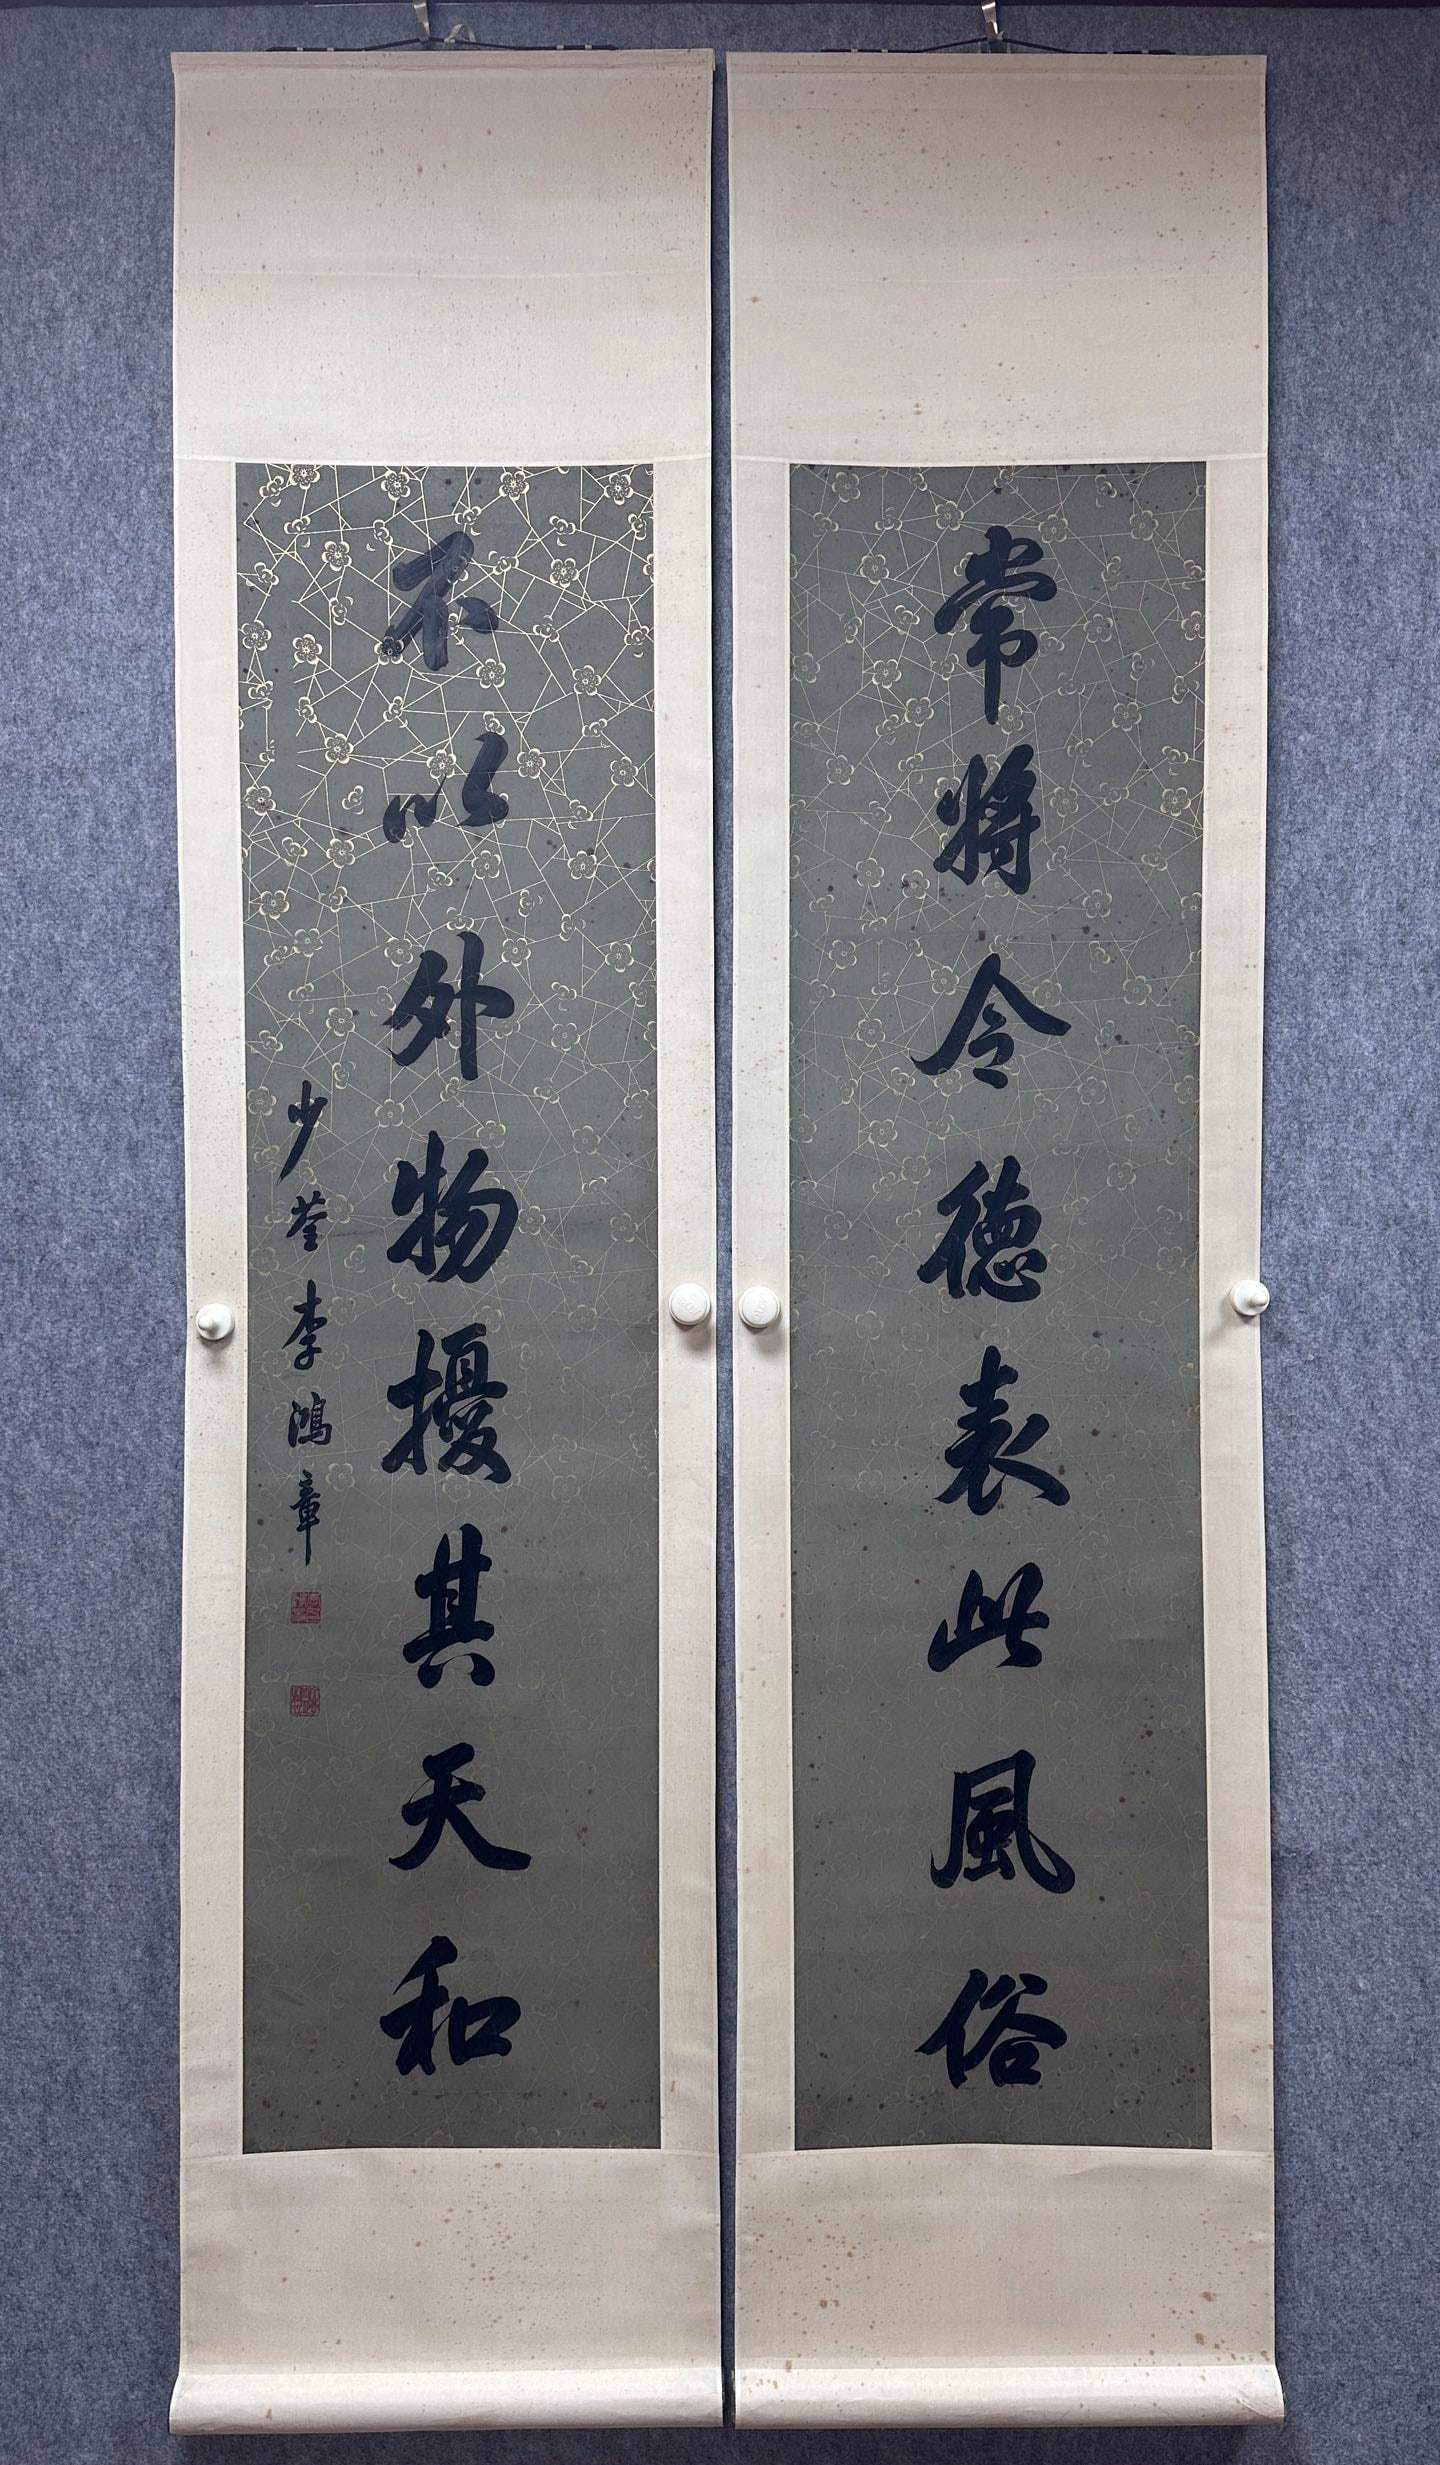 常將令德表此風俗
不以外物擾其天和
少荃李鴻章